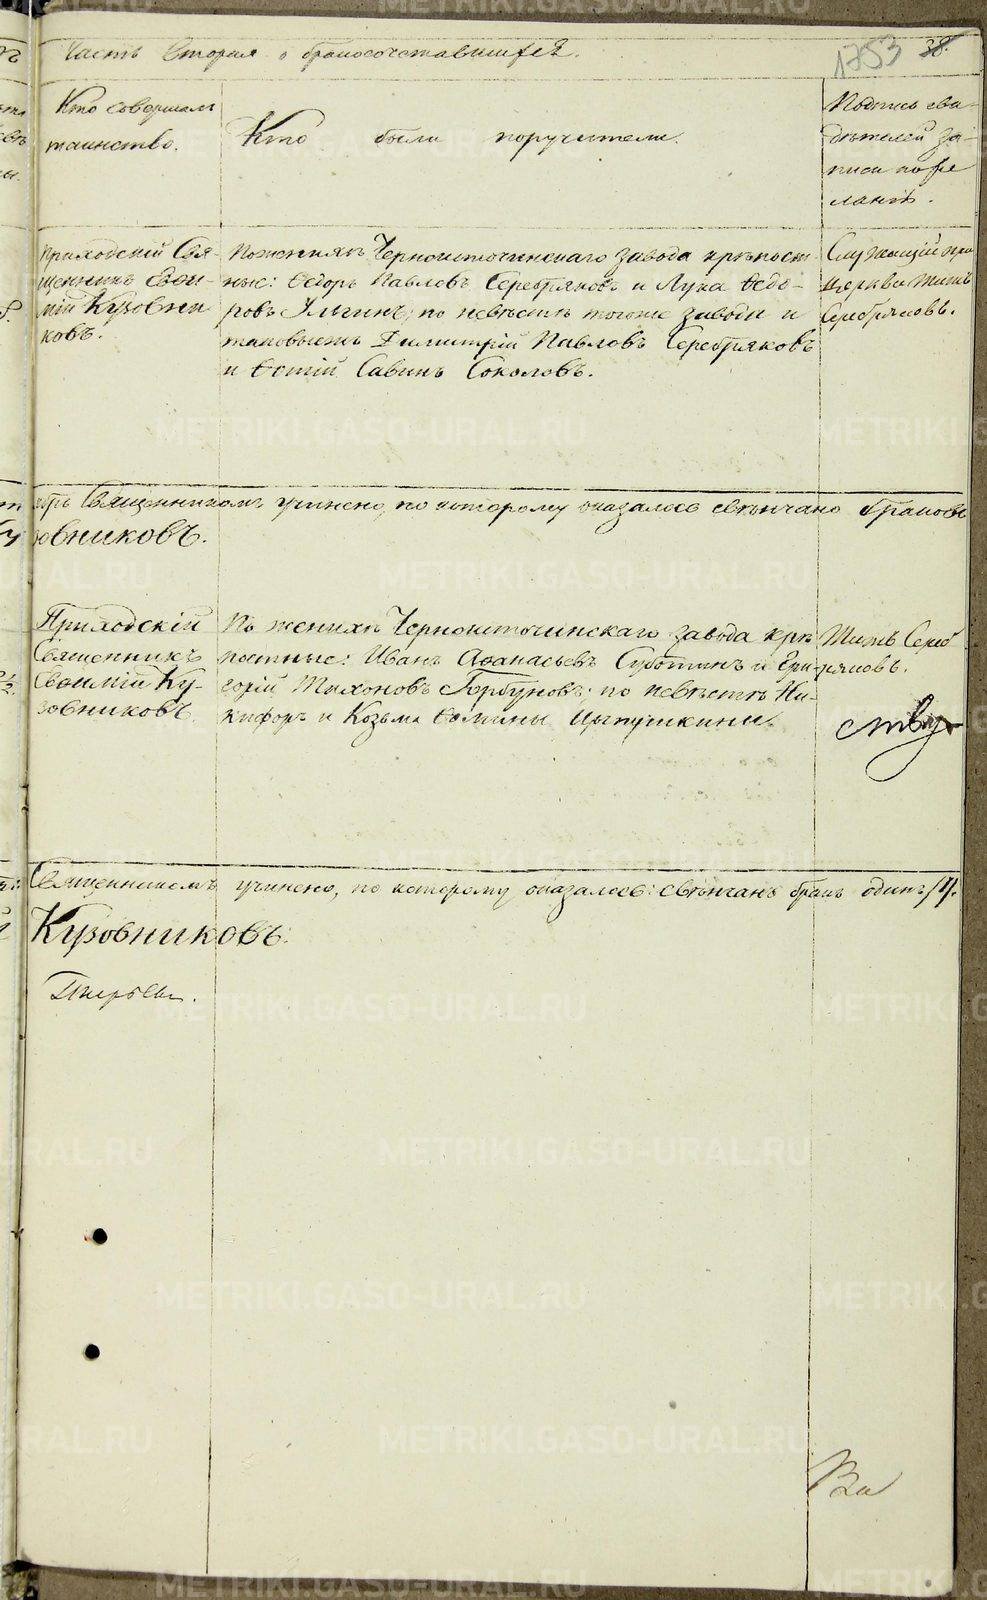 Часть вторая о бракосочетавшихся.
1753 38.
Кто совершалъ
таинство.
Кто были поручители.
Подпись сви-
дѣтелей за-
писи по же
ланію.
Приходскій Свя-
щенникъ Евѳи-
мій Кузовни
ковъ.
По женихѣ Черноисточинскаго завода крѣпост
ные: Ѳедоръ Павловъ Серебряковъ и Лука Ѳедо-
ровъ Ильинъ; по невѣстѣ тогоже завода и
таковыежъ Димитрій Павловъ Серебряковъ
и Ѳотій Савинъ Соколовъ.
Служащій при
церкви Титъ
Серебряковъ.
Священникомъ учинено, по которому оказалось свѣнчано браковъ
овниковъ.
Приходскій
Священникъ
Евѳимій Ку-
зовниковъ.
По женихѣ Черноисточинскаго завода крѣ
постные: Иванъ Аѳанасьевъ Суботинъ и Гри-
горій Тихоновъ Горбуновъ: по невѣстѣ Ни-
кифоръ и Козьма Ѳомины Цыпушкины.
Титъ Сереб
ряковъ.
ству
Священникомъ учинено, по которому оказалось: свѣнчанъ бракъ одинъ /1/.
Кузовниковъ.
METRIKI.GASO-URAL.RU